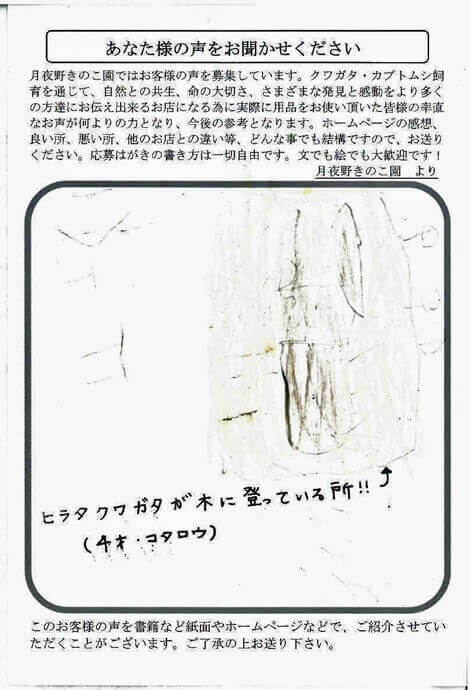 あなた様の声をお聞かせください
月夜野きのこ園ではお客様の声を募集しています。クワガタ・カブトムシ飼
育を通じて、自然との共生、命の大切さ、さまざまな発見と感動をより多く
の方達にお伝え出来るお店になる為に実際に用品をお使い頂いた皆様の率直
なお声が何よりの力となり、今後の参考となります。ホームページの感想、
良い所、悪い所、他のお店との違い等、どんな事でも結構ですので、お送り
ください。応募はがきの書き方は一切自由です。文でも絵でも大歓迎です！
月夜野きのこ園　より
ヒラタクワガタが木に登っている所!!
(4才・コタロウ)
このお客様の声を書籍など紙面やホームページなどで、ご紹介させてい
ただくことがございます。ご了承の上お送り下さい。